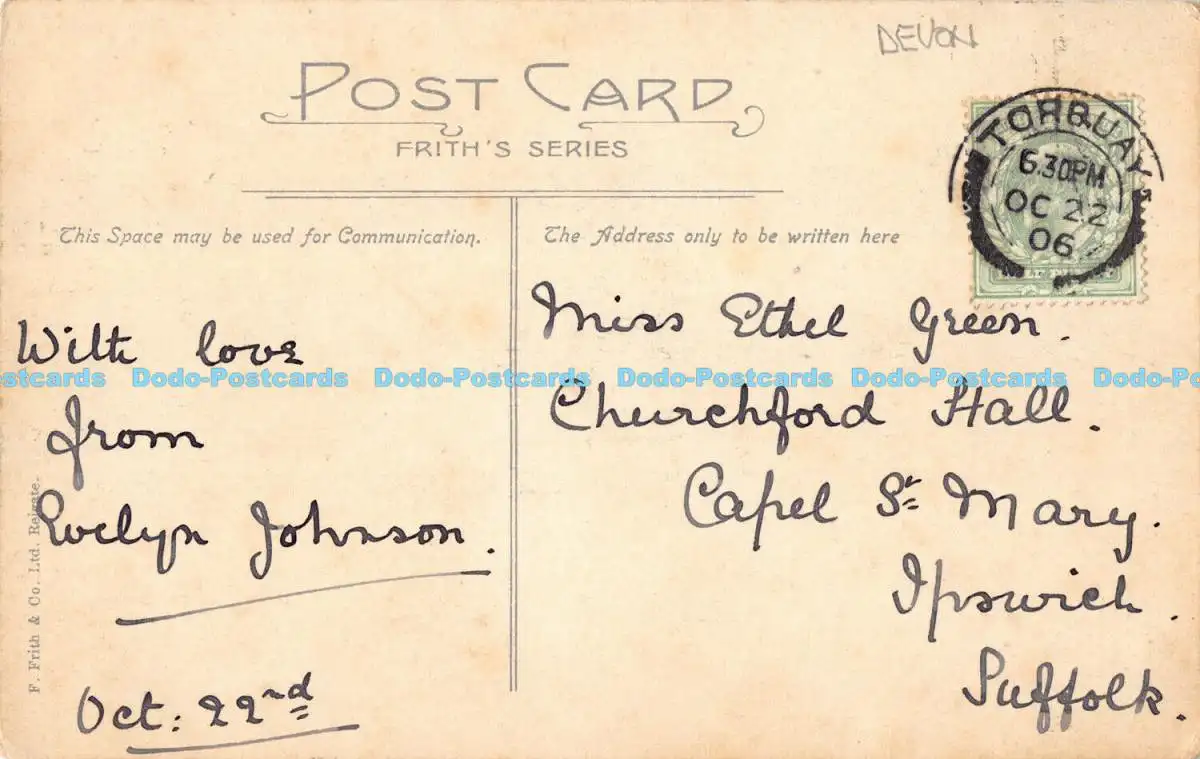 DEVON
POST CARD
FRITH'S SERIES
This Space may be used for Communication.
The Address only to be written here
TORQUAY
6.30PM
OC 22
06
With love
from
Evelyn Johnson.
Oct: 22nd
Miss Ethel Green.
Churchford Hall.
Capel St Mary.
Ipswich.
Suffolk.
F. Frith & Co. Ltd. Reigate.
Dodo-Postcards Dodo-Postcards Dodo-Postcards Dodo-Postcards